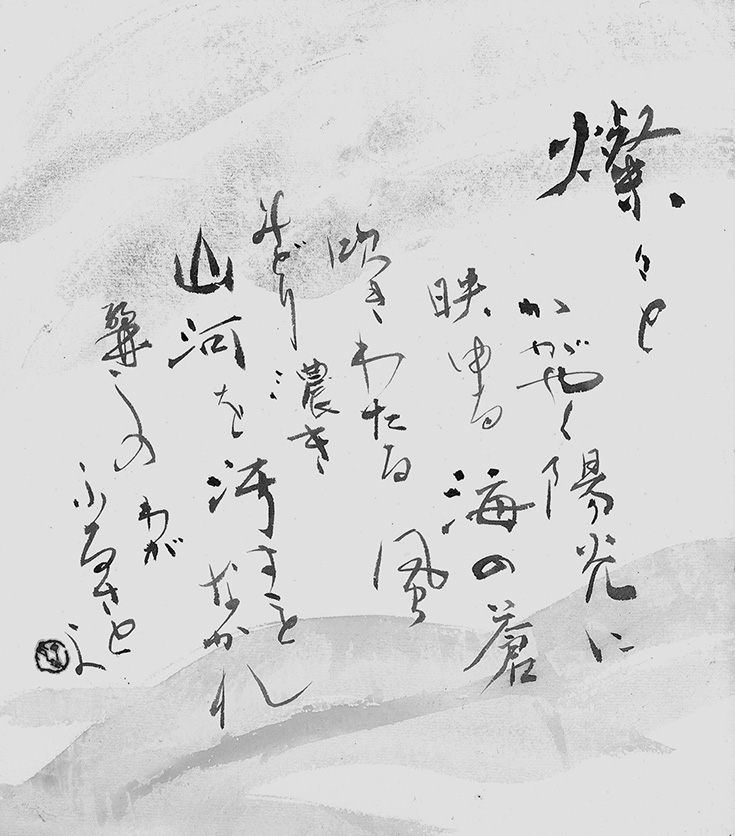 燦々と
かがやく陽光に
映ゆる海の蒼
吹きわたる風
みどり濃き
山河を汚すこと
なかれ
わが
ふるさと